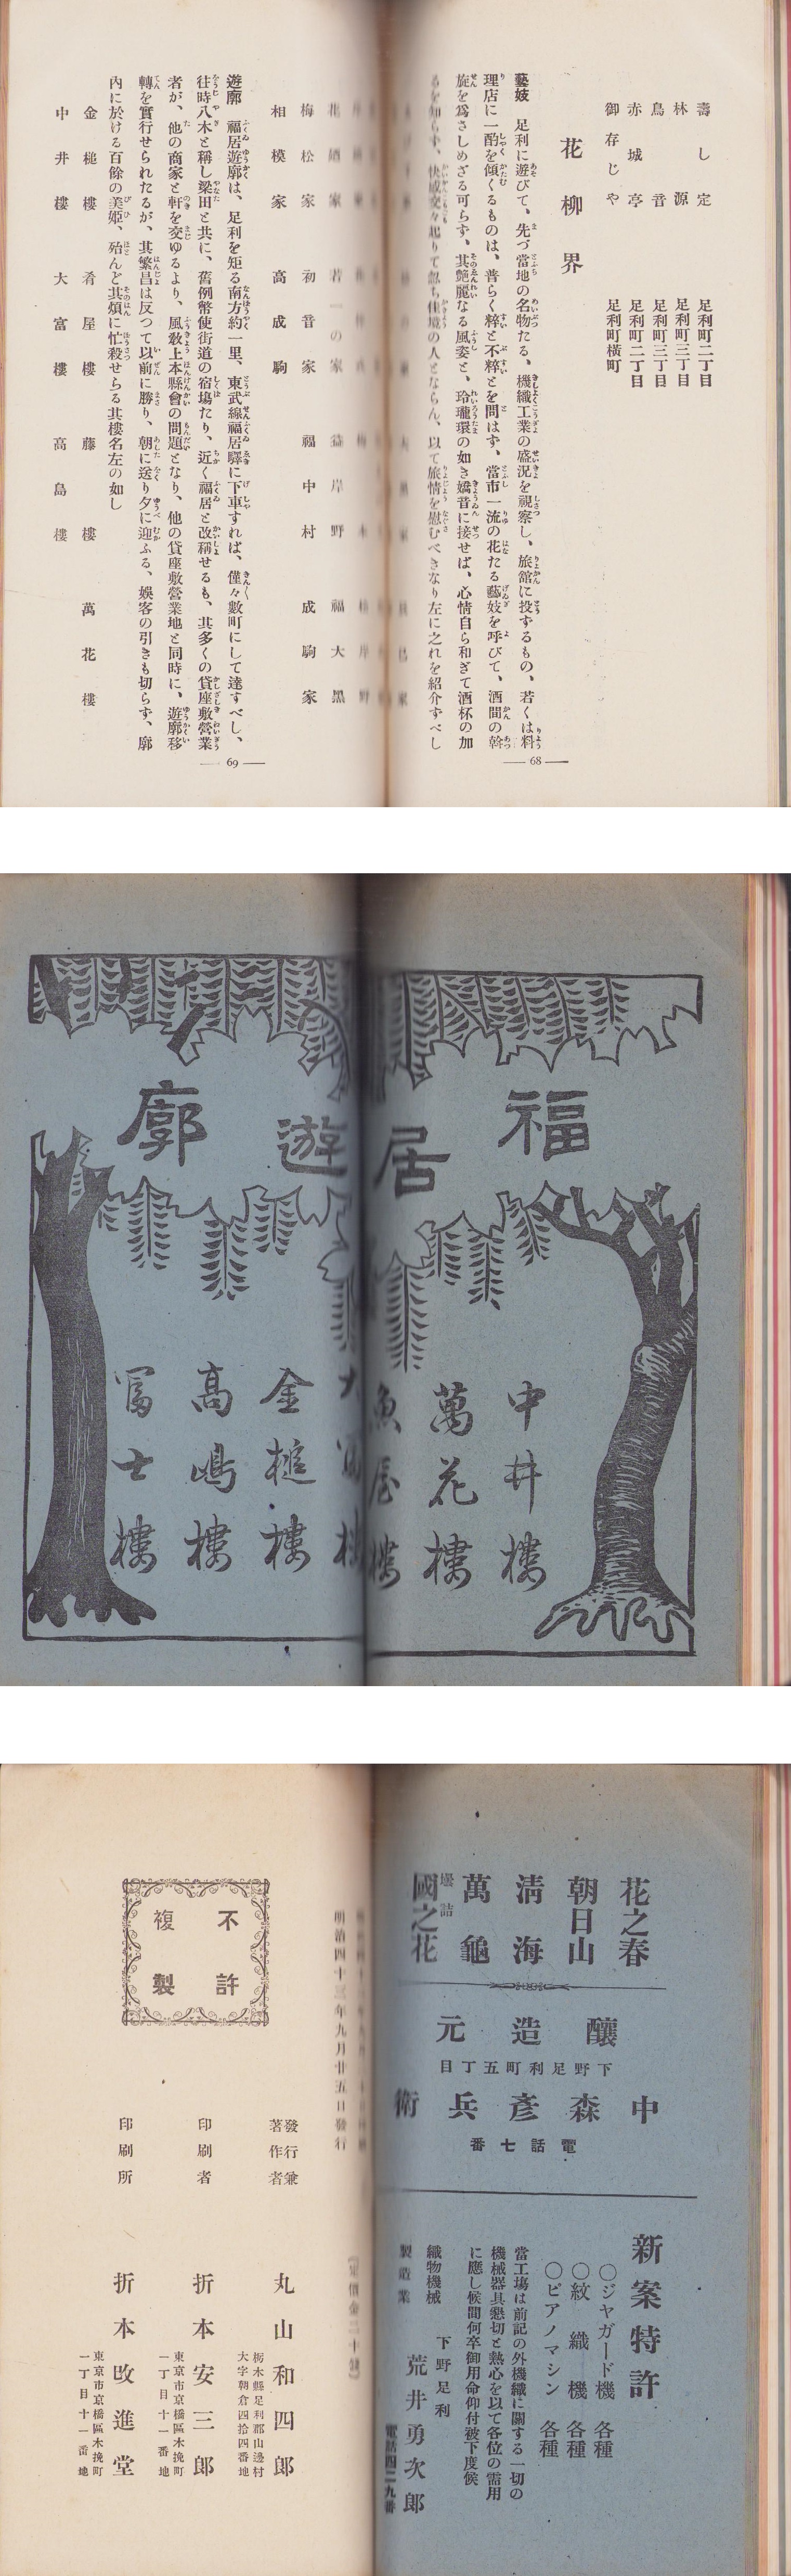 壽し定 足利町二丁目
林源 足利町三丁目
鳥音 足利町三丁目
赤城亭 足利町二丁目
御存じや 足利町橫町
花柳界
藝妓 足利に遊びて、先づ當地の名物たる、機織工業の盛況を視察し、旅館に投ずるもの、若くは料
理店に一酌を傾くるものは、普らく粹と不粹とを問はず、當市一流の花たる藝妓を呼びて、酒間の斡
旋を爲さしめざる可らず、其艶麗なる風姿と、玲瓏環の如き嬌音に接せば、心情自ら和ぎて酒杯の加
るを知らず、快感交々起りて忽ち佳境の人とならん、以て旅情を慰むべきなり左に之れを紹介すべし
68
花廼家 若一の家 益岸野 福大黑
梅松家 初音家 福中村 成駒家
相模家 高成駒
遊廓 福居遊廓は、足利を距る南方約一里、東武線福居驛に下車すれば、僅々數町にして達すべし、
往時八木と稱し梁田と共に、舊例幣使街道の宿塲たり、近く福居と改稱せるも、其多くの貸座敷營業
者が、他の商家と軒を交ゆるより、風敎上本縣會の問題となり、他の貸座敷營業地と同時に、遊廓移
轉を實行せられたるが、其繁昌は反つて以前に勝り、朝に送り夕に迎ふる、娛客の引きも切らず、廓
內に於ける百餘の美姬、殆んど其煩に忙殺せらる其樓名左の如し
金槌樓 肴屋樓 藤樓 萬花樓
中井樓 大富樓 高島樓
69
福居遊廓
中井樓
萬花樓
魚屋樓
大冨樓
金槌樓
高嶋樓
冨士樓
花之春
朝日山
淸海
萬龜
壜詰 國之花
釀造元
下野足利町五丁目
中森彥兵衛
電話七番
新案特許
○ジヤガード機 各種
○紋織機 各種
○ピアノマシン 各種
當工塲は前記の外機織に關する一切の
機械器具懇切と熱心を以て各位の需用
に應し候間何卒御用命仰付被下度候
下野足利
織物機械
製造業 荒井勇次郎
電話四二九番
明治四十三年九月廿五日發行
(定價金二十錢)
發行兼
著作者 丸山和四郎
栃木縣足利郡山邊村
大字朝倉四拾四番地
印刷者 折本安三郎
東京市京橋區木挽町
一丁目十一番地
印刷所 折本改進堂
東京市京橋區木挽町
一丁目十一番地
不許
複製